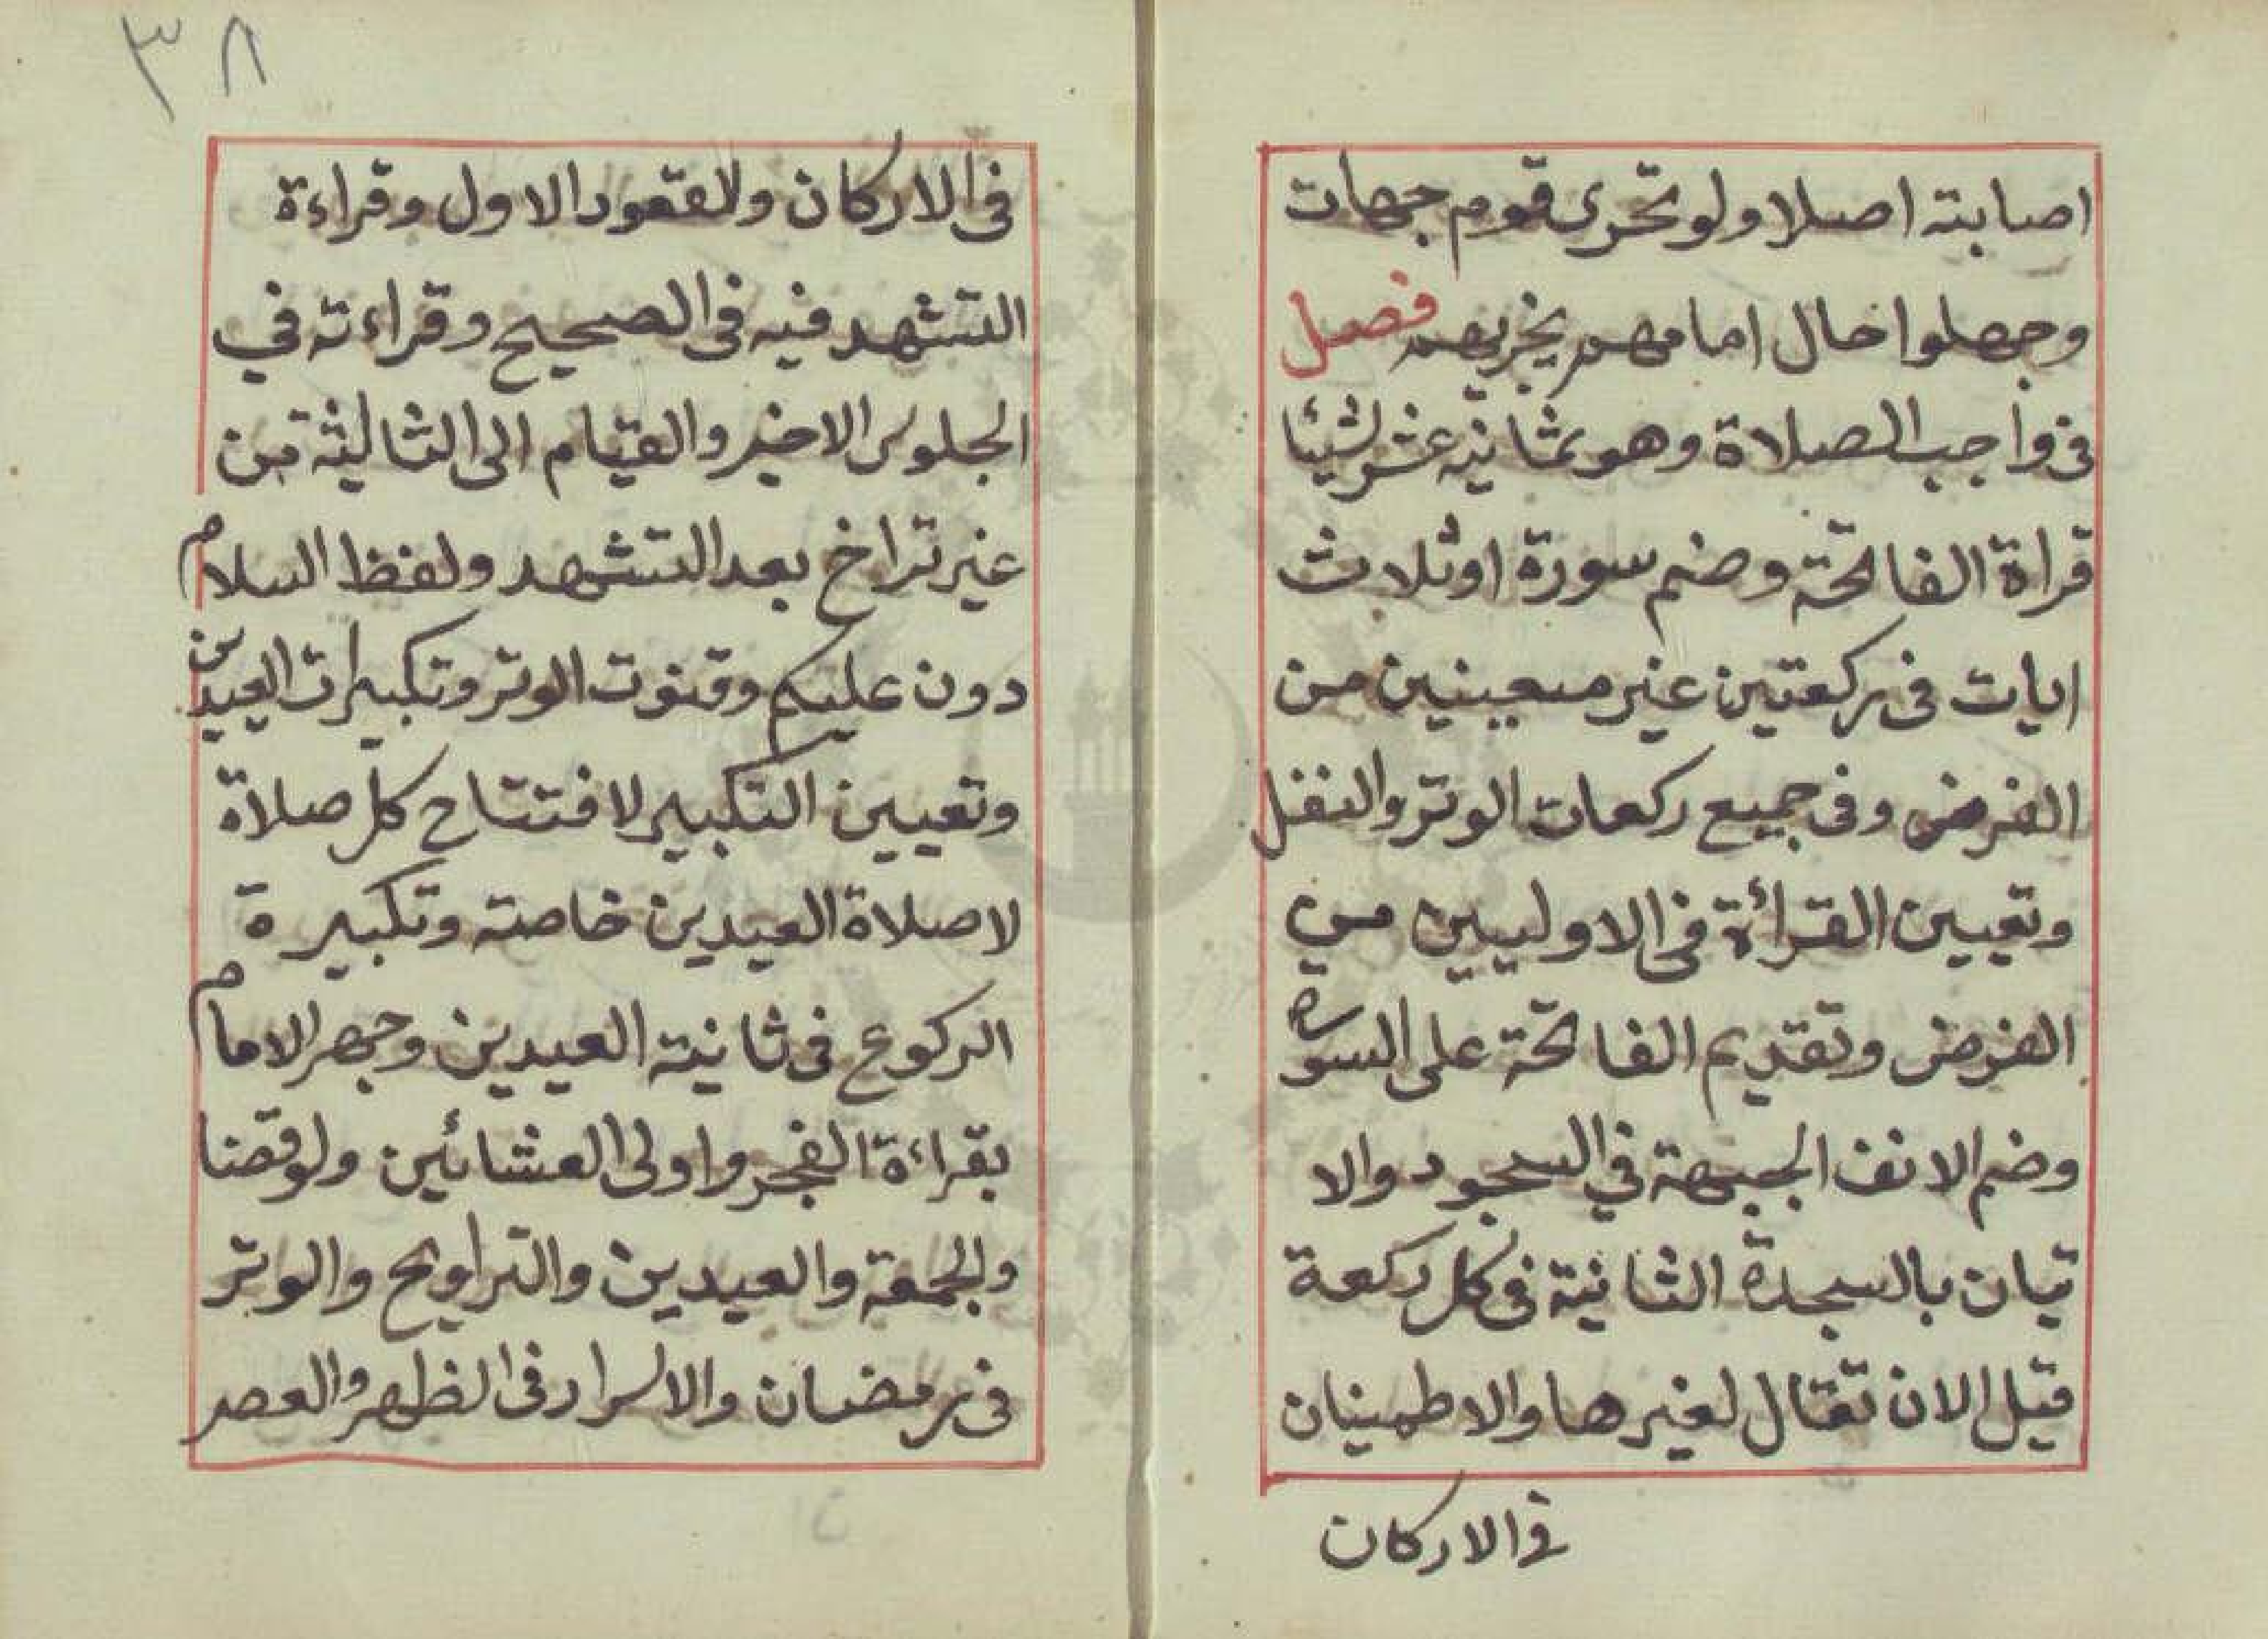 اصابته اصلا ولو تحرى قوم جهات
وجهلوا حال امامهم يجزيهم فصل
فى واجب الصلاة وهو ثمانيه عشر شيئا
قراة الفاتحة وضم سورة او ثلاث
ايات فى ركعتين غير معينين من
الفرض وفى جميع ركعات الوتر والنفل
وتعيين القرأة فى الاوليين من
الفرض وتقديم الفاتحة على السورة
وضم الانف الجبهة في السجود والا
تيان بالسجدة الثانية فى كل ركعة
قبل الانتقال لغيرها والاطمينان
فى الاركان
٣٨
فى الاركان والقعود الاول وقراءة
التشهد فيه فى الصحيح وقراءته في
الجلوس الاخير والقيام الى الثالثة من
غير تراخ بعد التشهد ولفظ السلام
دون عليكم وقنوت الوتر وتكبيرات العيدين
وتعيين التكبير لافتتاح كل صلاة
لا صلاة العيدين خاصته وتكبيرة
الركوع فى ثانية العيدين وجهر الامام
بقراءة الفجر واولى العشائين ولو قضا
والجمعة والعيدين والتراويح والوتر
فى رمضان والاسرار فى الظهر والعصر